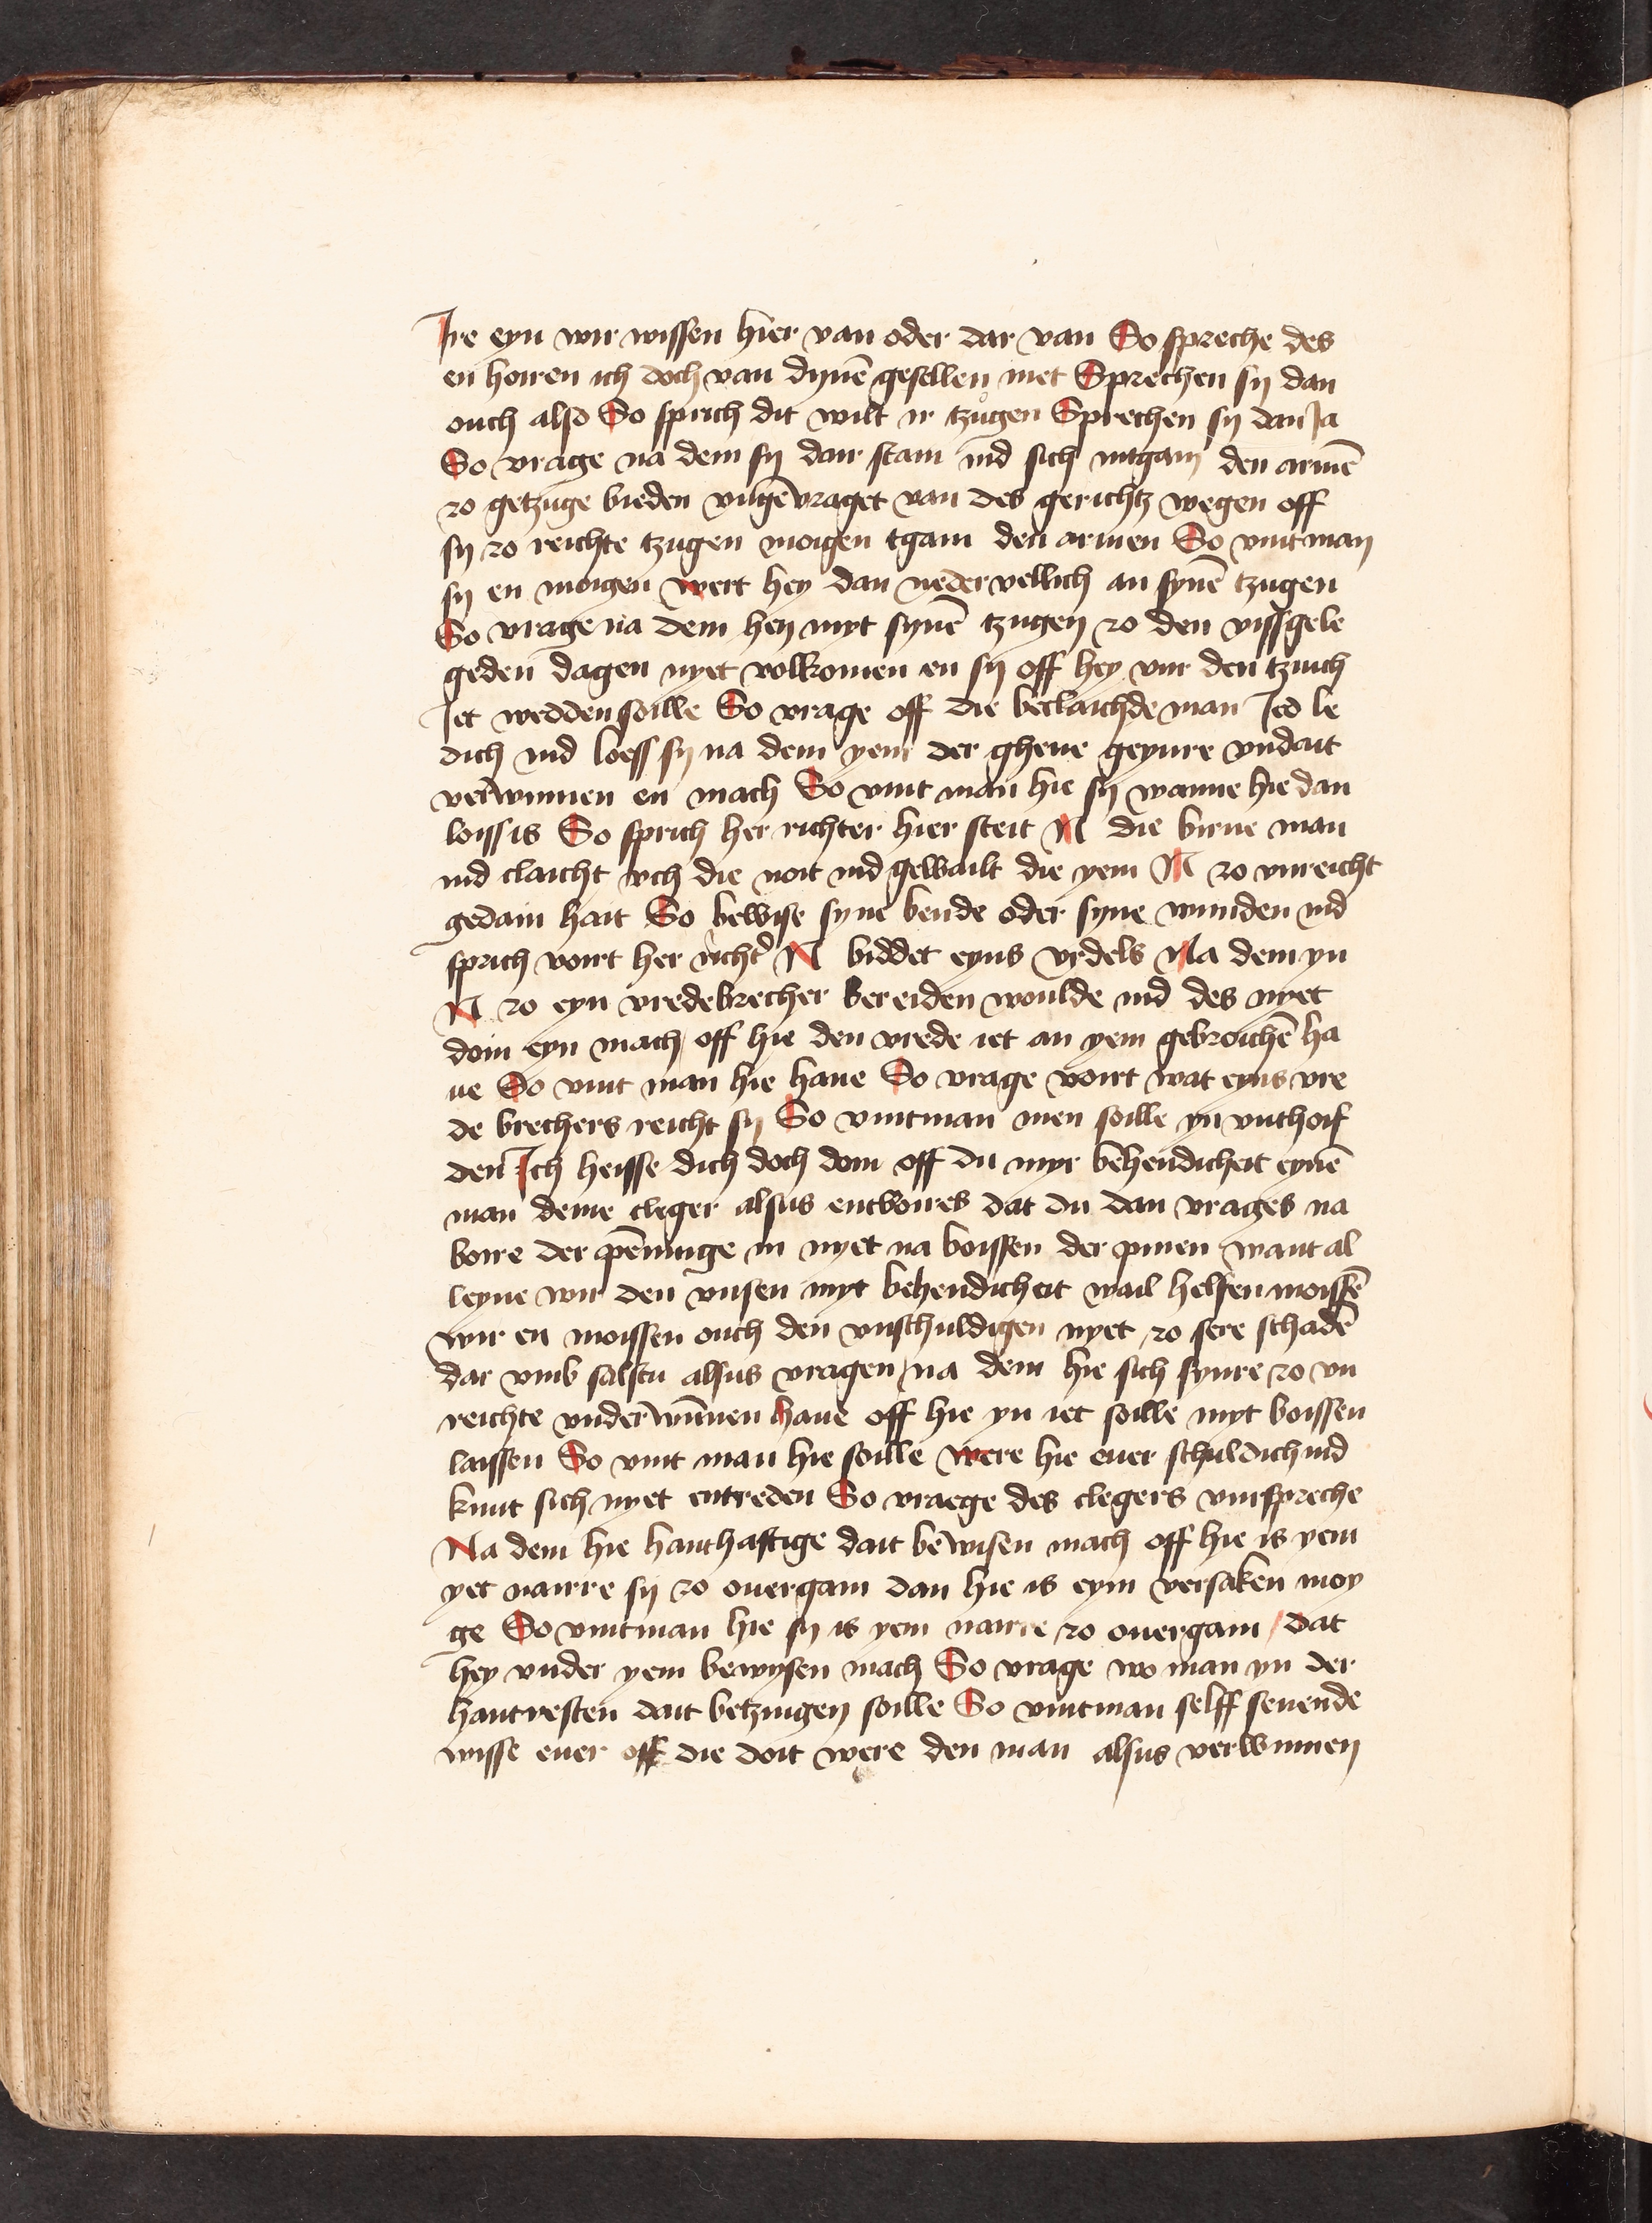 Ire eyn wir wissen hier van oder dar van So spreche des
en hoiren ich doch van dynē gesellen niet Sprechen sy dan
ouch also So sprich dit wilt ir tzůgen Sprechen sy dan Ja
So vrage na dem sy dair stain ind sich intgain den armē
zo getzuge bieden vngevraget van des gerichtz wegen off
sy zo reichte tzugen moigen tgain den armen So vint man
sy en moigen wert hey dan neder vellich an synē tzugen
So vrage na dem hey myt synē tzugen zo den vissgele
geden dagen nyet volkomen en sy off hey vur den tzuich
Jet wedden soille So vrage off die beclaichde man Jed le
dich ind loess sy na dem yem der ghene geynre vndait
verwinnen en mach So vint man hie sy wanne hie dan
loiss is So sprich her richter hier steit N die birue man
ind claicht vch die noit ind gewailt die yem N zo vnreicht
gedain hait So bewise syne bende oder syne wunden ind
sprich voirt her richt' N biddet eyns vrdels Na dem yn
N zo eyn vredebrecher bereiden woulde ind des nyet
doin eyn mach off hie den vrede iet an yem gebroichē ha
ue So vint man hie haue So vrage voirt wat eyns vre
de brechers reicht sy So vintman men soille yn vnthoif
den Ich heisse dich doch doin off du myr behendicheit eynē
man deme cleger alsus entvoires dat du dan vrages na
boire der penninge in nyet na boissen der pinen want al
leyne wir den vnsen myt behendicheit wail helfen moissē
wir en moissen ouch den vnschuldigen nyet zo sere schadē
dar vmb salstu alsus vragen na dem hie sich synre zo vn
reichte vnderwūnen haue off hie yn iet soille myt boissen
laissen So vint man hie soille were hie euer schuldich ind
kunt sich nyet entreden So vraege des clegers vurspreche
Na dem hie hanthaftige dait bewisen mach off hie is yem
yet nairre sy zo ouergain dan hie is eym versaken moy
ge So vintman hie sy is yem nairre zo ouergain / dat
hey vnder yem bewysen mach So vrage wo man yn der
hantvesten dait betzuigen soille So vintman selff seuende
wisse euer off die doit were den man alsus verwinnen